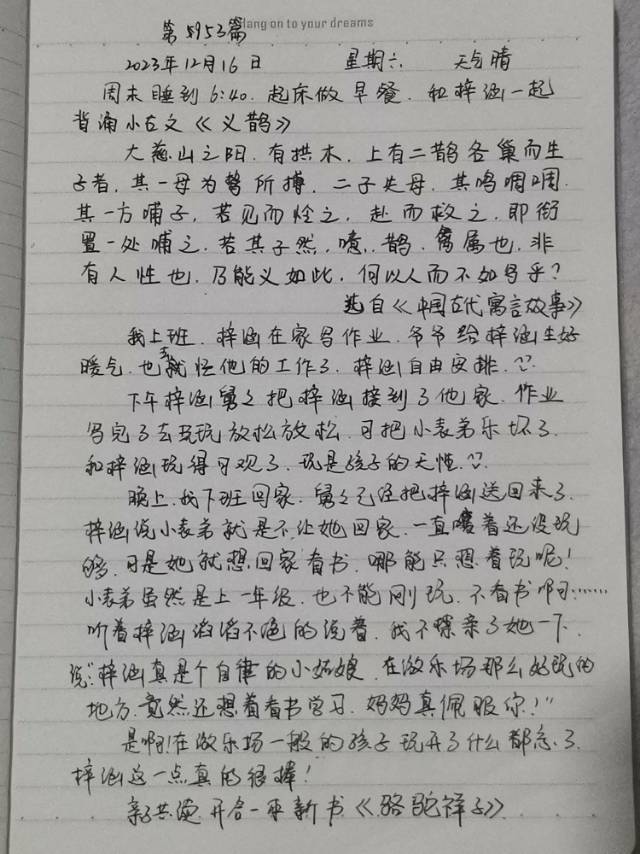 第5953篇
Hang on to your dreams
2023年12月16日 星期六 天气晴
周末睡到6:40.起床做早餐.和梓涵一起
背诵小古文《义鹊》
大慈山之阳.有拱木.上有二鹊各巢而生
子者.其一母为鸷所搏.二子失母.其鸣啁啁.
其一方哺子,若见而怜之,赴而救之.即衔
置一处哺之.若其子然,噫.鹊.禽属也.非
有人性也.乃能义如此,何以人而不如鸟乎?
选自《中国古代寓言故事》
我上班.梓涵在家写作业.爷爷给梓涵生好
暖气.也去忙他的工作了.梓涵自由安排.
下午梓涵舅舅把梓涵接到了他家.作业
写完了去玩玩放松放松.可把小表弟乐坏了.
和梓涵玩得可欢了.玩是孩子的天性.
晚上.我下班回家.舅舅已经把梓涵送回来了.
梓涵说小表弟就是不让她回家.一直嚷着还没玩
够.可是她就想回家看书.哪能只想着玩呢!
小表弟虽然是上一年级.也不能刚玩.不看书啊……
听着梓涵滔滔不绝的说着.我不禁亲了她一下.
说:"梓涵真是个自律的小姑娘.在游乐场那么好玩的
地方.竟然还想着看书学习.妈妈真佩服你!"
是啊!在游乐场一般的孩子玩开了什么都忘了.
梓涵这一点真的很棒!
亲子共读开启一本新书《骆驼祥子》